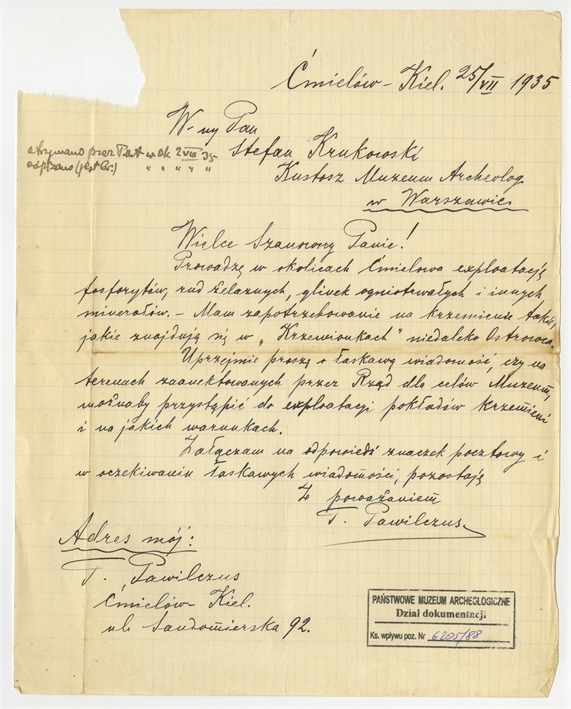 Ćmielów - Kiel. 25/VII 1935
W-ny Pan
Stefan Krukowski
Kustosz Muzeum Archeolog
w Warszawie
otrzymano przez Pat w ok 2 VIII 35
Wielce Szanowny Panie!
Prowadzę w okolicach Ćmielowa exploatację
fosforytów, rud żelaznych, glinek ogniotrwałych i innych
minerałów. - Mam zapotrzebowanie na krzemienie takie,
jakie znajdują się w „Krzewionkach" niedaleko Ostrowca.
Uprzejmie proszę o łaskawą wiadomość, czy na
terenach zaanektowanych przez Rząd dla celów Muzeum,
możnaby przystąpić do exploatacji pokładów krzemieni
i na jakich warunkach.
Załączam na odpowiedź znaczek pocztowy i
w oczekiwaniu łaskawych wiadomości, pozostaję
Z poważaniem
T. Pawilczus
Adres mój:
T. Pawilczus
Ćmielów - Kiel.
ul. Sandomierska 92.
PAŃSTWOWE MUZEUM ARCHEOLOGICZNE
Dział dokumentacji
Ks. wpływu poz. Nr 6205/88